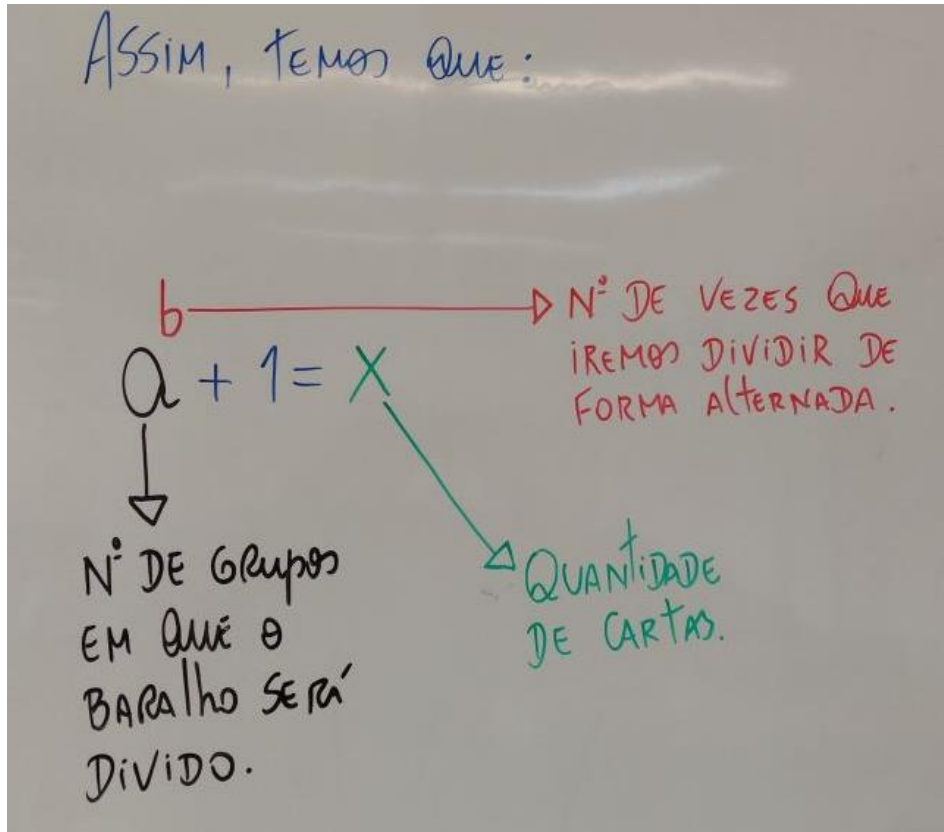 ASSIM, TEMOS QUE:
b
a + 1 = X
Nº DE VEZES QUE
IREMOS DIVIDIR DE
FORMA ALTERNADA.
Nº DE GRUPOS
EM QUE O
BARALHO SERÁ
DIVIDO.
QUANTIDADE
DE CARTAS.